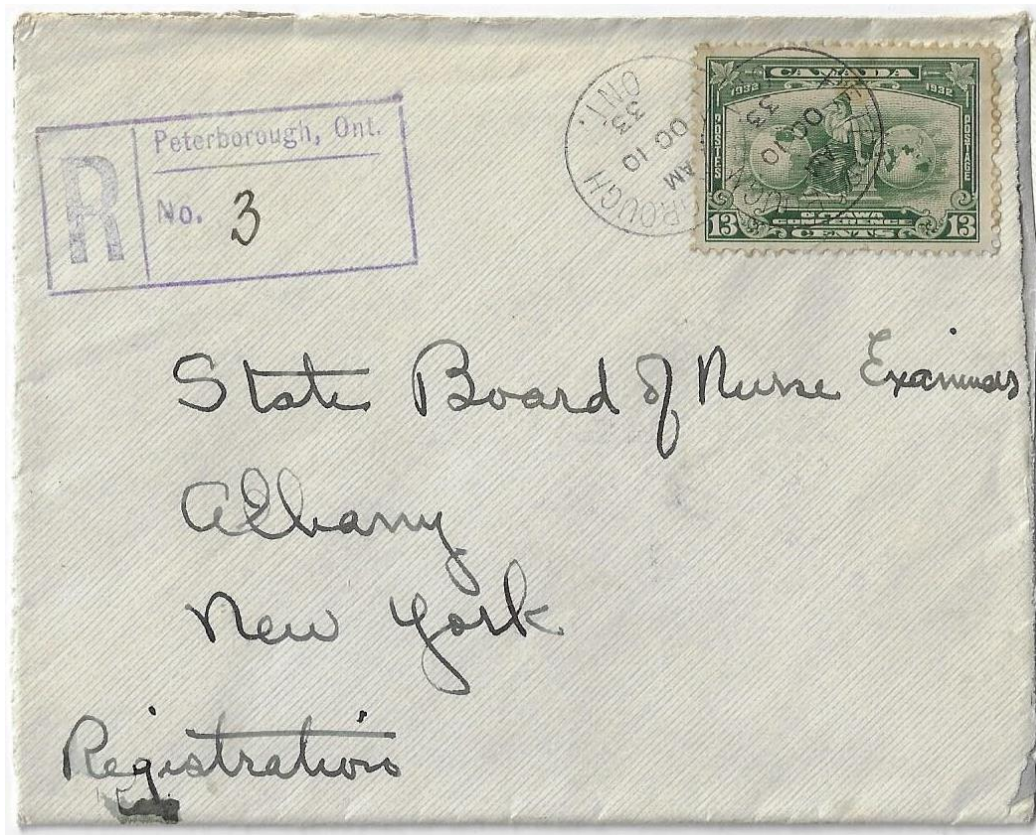 R
Peterborough, Ont.
No. 3
ROUGH
ONT.
AM
OC 10
33
AM
OC 10
33
CANADA
1932 1932
POSTES POSTAGE
OTTAWA
CONFERENCE
13 CENTS 13
State Board of Nurse Examiners
Albany
New York
Registration